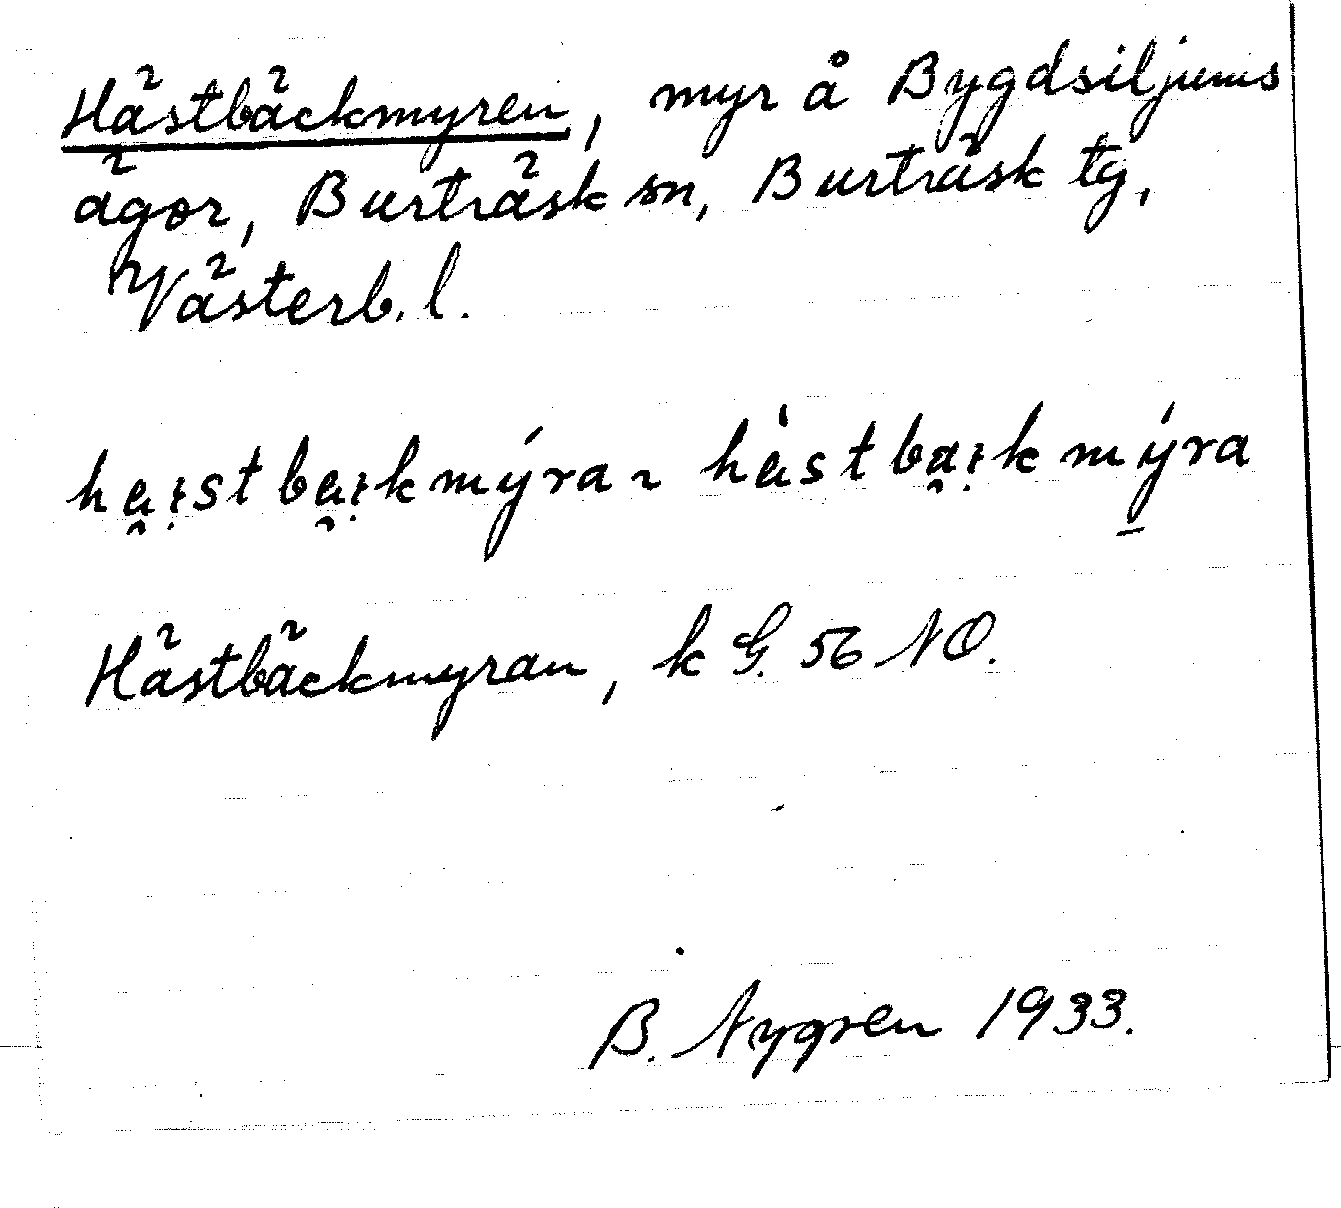 Hästbäckmyren, myr å Bygdsiljums
ägor, Burträsk sn, Burträsk tg,
Västerb. l.
ha̯ı̣stba̯ı̣kmýra ~ hàstba̯ı̣kmýra
Hästbäckmyran, k G. 56 NO.
B. Nygren 1933.